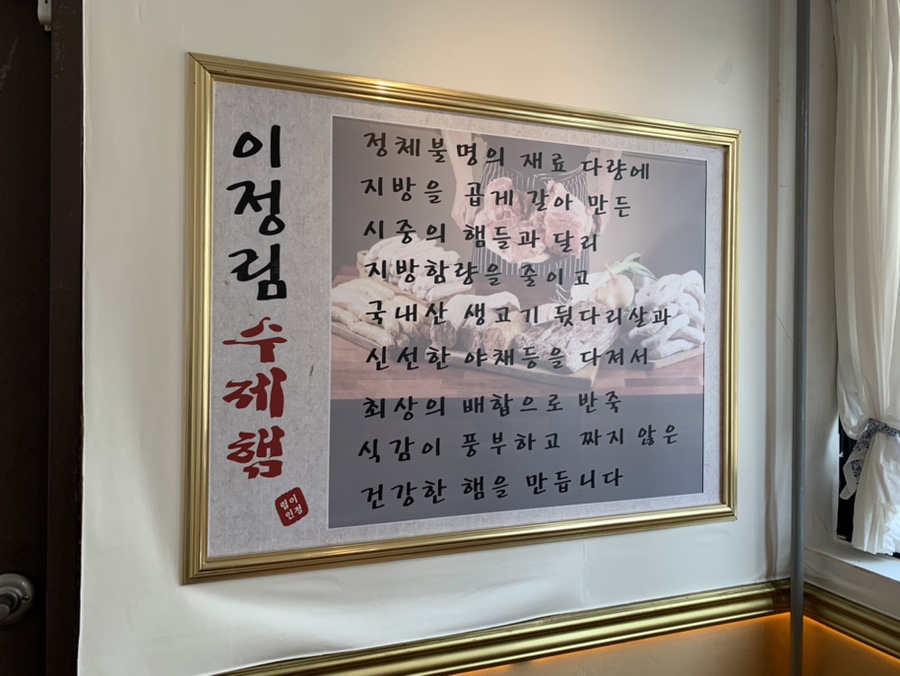 이정림 수제햄
정체불명의 재료 다량에
지방을 곱게 갈아 만든
시중의 햄들과 달리
지방함량을 줄이고
국내산 생고기 뒷다리살과
신선한 야채등을 다져서
최상의 배합으로 반죽
식감이 풍부하고 짜지 않은
건강한 햄을 만듭니다